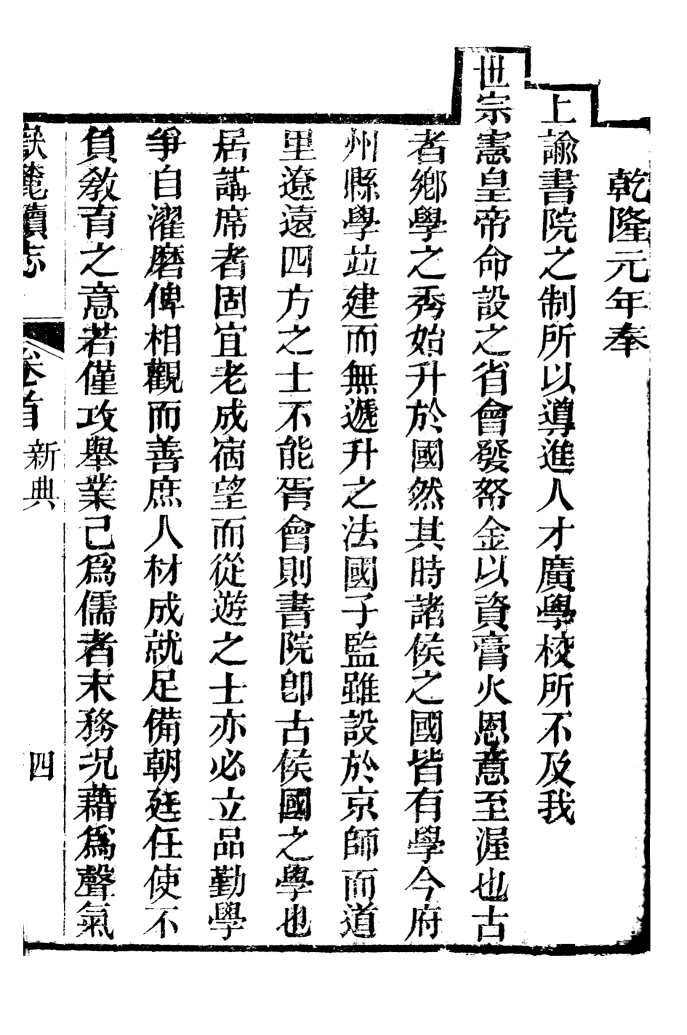 乾隆元年奉
上諭書院之制所以導進人才廣學校所不及我
世宗憲皇帝命設之省會發帑金以資膏火恩意至渥也古
者鄉學之秀始升於國然其時諸侯之國皆有學今府
州縣學竝建而無遞升之法國子監雖設於京師而道
里遼遠四方之士不能胥會則書院卽古侯國之學也
居講席者固宜老成宿望而從遊之士亦必立品勤學
爭自濯磨俾相觀而善庶人材成就足備朝廷任使不
負教育之意若僅攻舉業己爲儒者末務况藉爲聲氣
嶽麓續志
卷首
新典
四